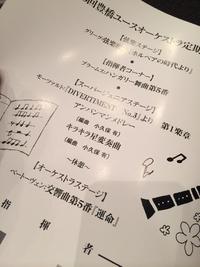 回豊橋ユースオーケストラ定期
【弦楽ステージ】
グリーグ:弦楽 『ホルベアの時代より』
【指揮者コーナー】
ブラームス:ハンガリー舞曲第5番
【スーパージュニアステージ】
モーツァルト:『DIVERTIMENT No.3』より 第1楽章
アンパンマンメドレー
(編曲 小久保 有)
キラキラ星変奏曲
(編曲 小久保 有)
～休憩～
【オーケストラステージ】
ベートーヴェン:交響曲第5番『運命』
指 揮 者